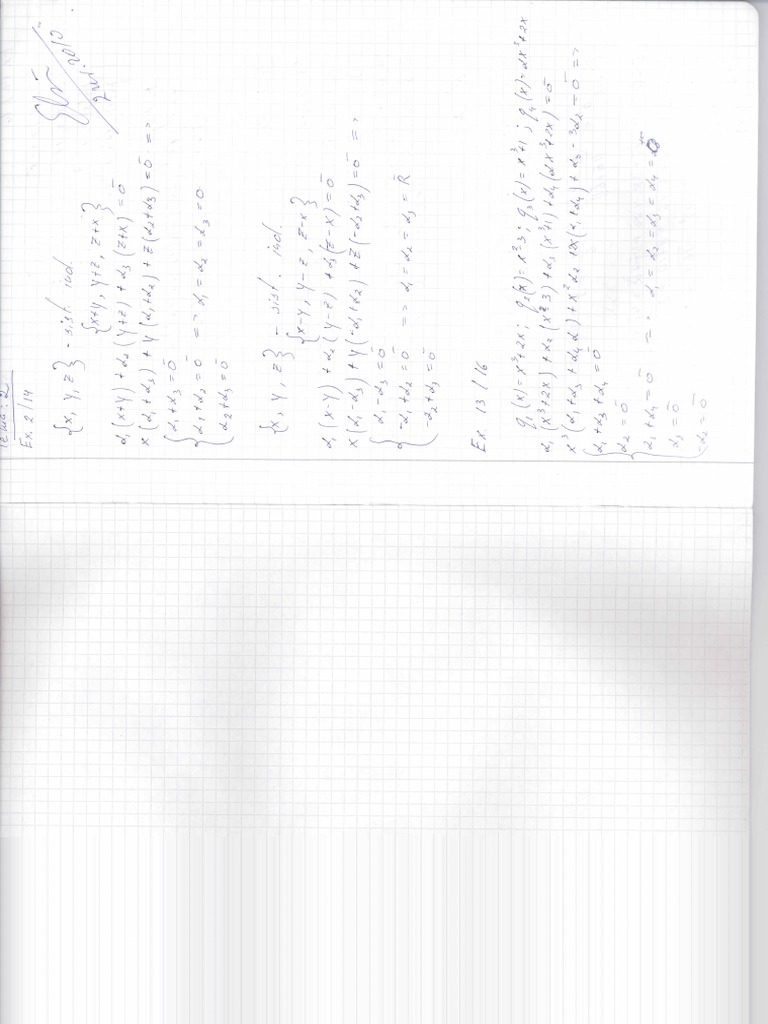 Tema: 2
Ex. 2/14
{x, y, z} - sist. ind.
{x+y, y+z, z+x}
α₁(x+y) + α₂(y+z) + α₃(z+x) = 0̄
x(α₁+α₃) + y(α₁+α₂) + z(α₂+α₃) = 0̄ =>
{α₁+α₃ = 0̄
α₁+α₂ = 0̄ => α₁ = α₂ = α₃ = 0
α₂+α₃ = 0̄
{x, y, z} - sist. ind.
{x-y, y-z, z-x}
α₁(x-y) + α₂(y-z) + α₃(z-x) = 0̄
x(α₁-α₃) + y(-α₁+α₂) + z(-α₂+α₃) = 0̄ =>
{α₁-α₃ = 0̄
-α₁+α₂ = 0̄ => α₁ = α₂ = α₃ = R
-α₂+α₃ = 0̄
Ex. 13/16
g₁(x) = x³+2x; g₂(x) = x²-3; g₃(x) = x³+1; g₄(x) = αx³+2x
α₁(x³+2x) + α₂(x²-3) + α₃(x³+1) + α₄(αx³+2x) = 0̄
x³(α₁+α₃+α₄α) + x²α₂ + 2x(α₁+α₄) + α₃ - 3α₂ = 0̄ =>
{α₁+α₃+α₄ = 0̄
α₂ = 0̄
α₁+α₄ = 0̄ => α₁ = α₂ = α₃ = α₄ = 0
α₃ = 0̄
-α₂ = 0̄